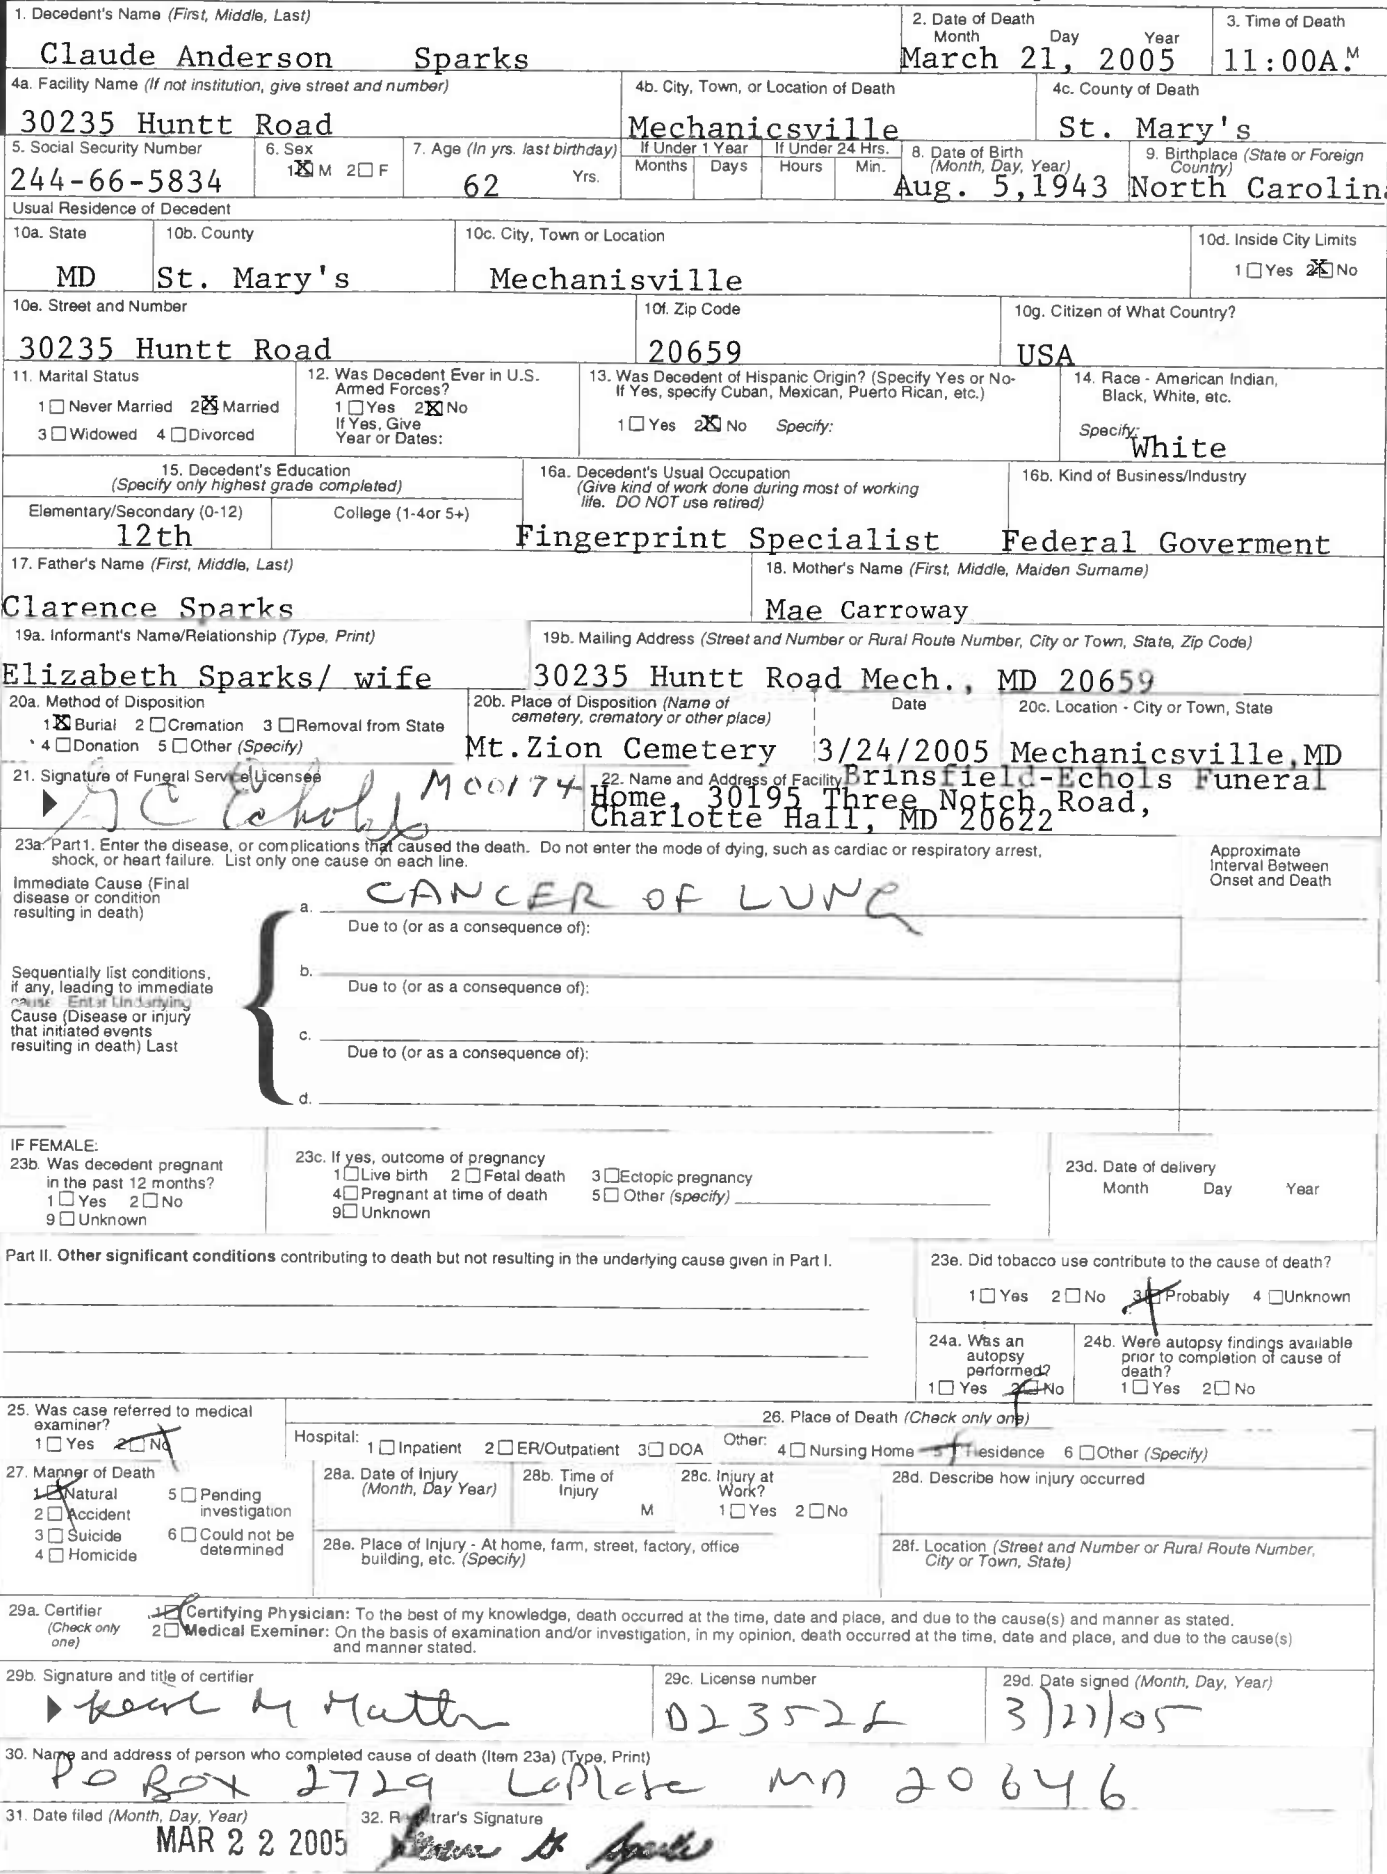 1. Decedent's Name (First, Middle, Last)
Claude Anderson Sparks
2. Date of Death
Month Day Year
March 21, 2005
3. Time of Death
11:00A.M
4a. Facility Name (If not institution, give street and number)
30235 Huntt Road
4b. City, Town, or Location of Death
Mechanicsville
4c. County of Death
St. Mary's
5. Social Security Number
244-66-5834
6. Sex
1☒ M 2☐ F
7. Age (In yrs. last birthday)
62 Yrs.
If Under 1 Year
Months Days
If Under 24 Hrs.
Hours Min.
8. Date of Birth
(Month, Day, Year)
Aug. 5,1943
9. Birthplace (State or Foreign
Country)
North Carolina
Usual Residence of Decedent
10a. State
MD
10b. County
St. Mary's
10c. City, Town or Location
Mechanisville
10d. Inside City Limits
1☐Yes 2☒No
10e. Street and Number
30235 Huntt Road
10f. Zip Code
20659
10g. Citizen of What Country?
USA
11. Marital Status
1☐Never Married 2☒Married
3☐Widowed 4☐Divorced
12. Was Decedent Ever in U.S.
Armed Forces?
1☐Yes 2☒No
If Yes, Give
Year or Dates:
13. Was Decedent of Hispanic Origin? (Specify Yes or No-
If Yes, specify Cuban, Mexican, Puerto Rican, etc.)
1☐Yes 2☒No Specify:
14. Race - American Indian,
Black, White, etc.
Specify:
White
15. Decedent's Education
(Specify only highest grade completed)
Elementary/Secondary (0-12) College (1-4or 5+)
12th
16a. Decedent's Usual Occupation
(Give kind of work done during most of working
life. DO NOT use retired)
Fingerprint Specialist
16b. Kind of Business/Industry
Federal Goverment
17. Father's Name (First, Middle, Last)
Clarence Sparks
18. Mother's Name (First, Middle, Maiden Surname)
Mae Carroway
19a. Informant's Name/Relationship (Type, Print)
Elizabeth Sparks/ wife
19b. Mailing Address (Street and Number or Rural Route Number, City or Town, State, Zip Code)
30235 Huntt Road Mech., MD 20659
20a. Method of Disposition
1☒Burial 2☐Cremation 3☐Removal from State
4☐Donation 5☐Other (Specify)
20b. Place of Disposition (Name of
cemetery, crematory or other place)
Mt.Zion Cemetery
Date
3/24/2005
20c. Location - City or Town, State
Mechanicsville,MD
21. Signature of Funeral Service Licensee
Echols M00174
22. Name and Address of Facility Brinsfield-Echols Funeral
Home, 30195 Three Notch Road,
Charlotte Hall, MD 20622
23a. Part1. Enter the disease, or complications that caused the death. Do not enter the mode of dying, such as cardiac or respiratory arrest,
shock, or heart failure. List only one cause on each line.
Approximate
Interval Between
Onset and Death
Immediate Cause (Final
disease or condition
resulting in death)
a. CANCER OF LUNG
Due to (or as a consequence of):
Sequentially list conditions,
if any, leading to immediate
cause Enter Underlying
Cause (Disease or injury
that initiated events
resulting in death) Last
b.
Due to (or as a consequence of):
c.
Due to (or as a consequence of):
d.
IF FEMALE:
23b. Was decedent pregnant
in the past 12 months?
1☐Yes 2☐No
9☐Unknown
23c. If yes, outcome of pregnancy
1☐Live birth 2☐Fetal death 3☐Ectopic pregnancy
4☐Pregnant at time of death 5☐Other (specify)
9☐Unknown
23d. Date of delivery
Month Day Year
Part II. Other significant conditions contributing to death but not resulting in the underlying cause given in Part I.
23e. Did tobacco use contribute to the cause of death?
1☐Yes 2☐No 3☒Probably 4☐Unknown
24a. Was an
autopsy
performed?
1☐Yes 2☒No
24b. Were autopsy findings available
prior to completion of cause of
death?
1☐Yes 2☐No
25. Was case referred to medical
examiner?
1☐Yes 2☒No
26. Place of Death (Check only one)
Hospital: 1☐Inpatient 2☐ER/Outpatient 3☐DOA Other: 4☐Nursing Home 5☒Residence 6☐Other (Specify)
27. Manner of Death
1☒Natural 5☐Pending
investigation
2☐Accident
3☐Suicide 6☐Could not be
determined
4☐Homicide
28a. Date of Injury
(Month, Day Year)
28b. Time of
Injury
M
28c. Injury at
Work?
1☐Yes 2☐No
28d. Describe how injury occurred
28e. Place of Injury - At home, farm, street, factory, office
building, etc. (Specify)
28f. Location (Street and Number or Rural Route Number,
City or Town, State)
29a. Certifier
(Check only
one)
1☒Certifying Physician: To the best of my knowledge, death occurred at the time, date and place, and due to the cause(s) and manner as stated.
2☐Medical Examiner: On the basis of examination and/or investigation, in my opinion, death occurred at the time, date and place, and due to the cause(s)
and manner stated.
29b. Signature and title of certifier
29c. License number
29d. Date signed (Month, Day, Year)
30. Name and address of person who completed cause of death (Item 23a) (Type, Print)
PO BOX 2729 LaPlata MD 20646
31. Date filed (Month, Day, Year)
MAR 22 2005
32. Registrar's Signature